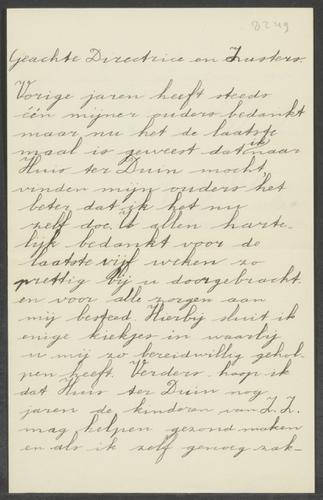 8249
Geachte Directrice en Zusters.
Vorige jaren heeft steeds
één mijner ouders bedankt
maar nu het de laatste
maal is geweest dat ik naar
Huis ter Duin mocht,
vinden mijn ouders het
beter dat ik het nu
zelf doe. U allen harte-
lijk bedankt voor de
laatste vijf weken zo
prettig bij u doorgebracht
en voor alle zorgen aan
mij besteed. Hierbij sluit ik
enige kiekjes in waarbij
u mij zo bereidwillig gehol-
pen heeft. Verders hoop ik
dat Huis ter Duin nog
jaren de kinderen van Z. Z.
mag helpen gezond maken
en als ik zelf genoeg zak-